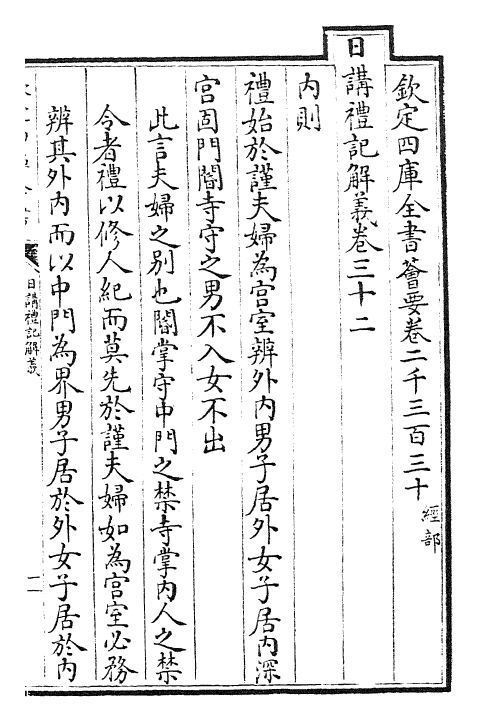 欽定四庫全書薈要卷二千三百三十 經部
日講禮記解義卷三十二
內則
禮始於謹夫婦為宮室辨外内男子居外女子居内深
宮固門閽寺守之男不入女不出
此言夫婦之别也閽掌守中門之禁寺掌内人之禁
令者禮以修人紀而莫先於謹夫婦如為宮室必務
辨其外内而以中門為界男子居於外女子居於内
日講禮記解義